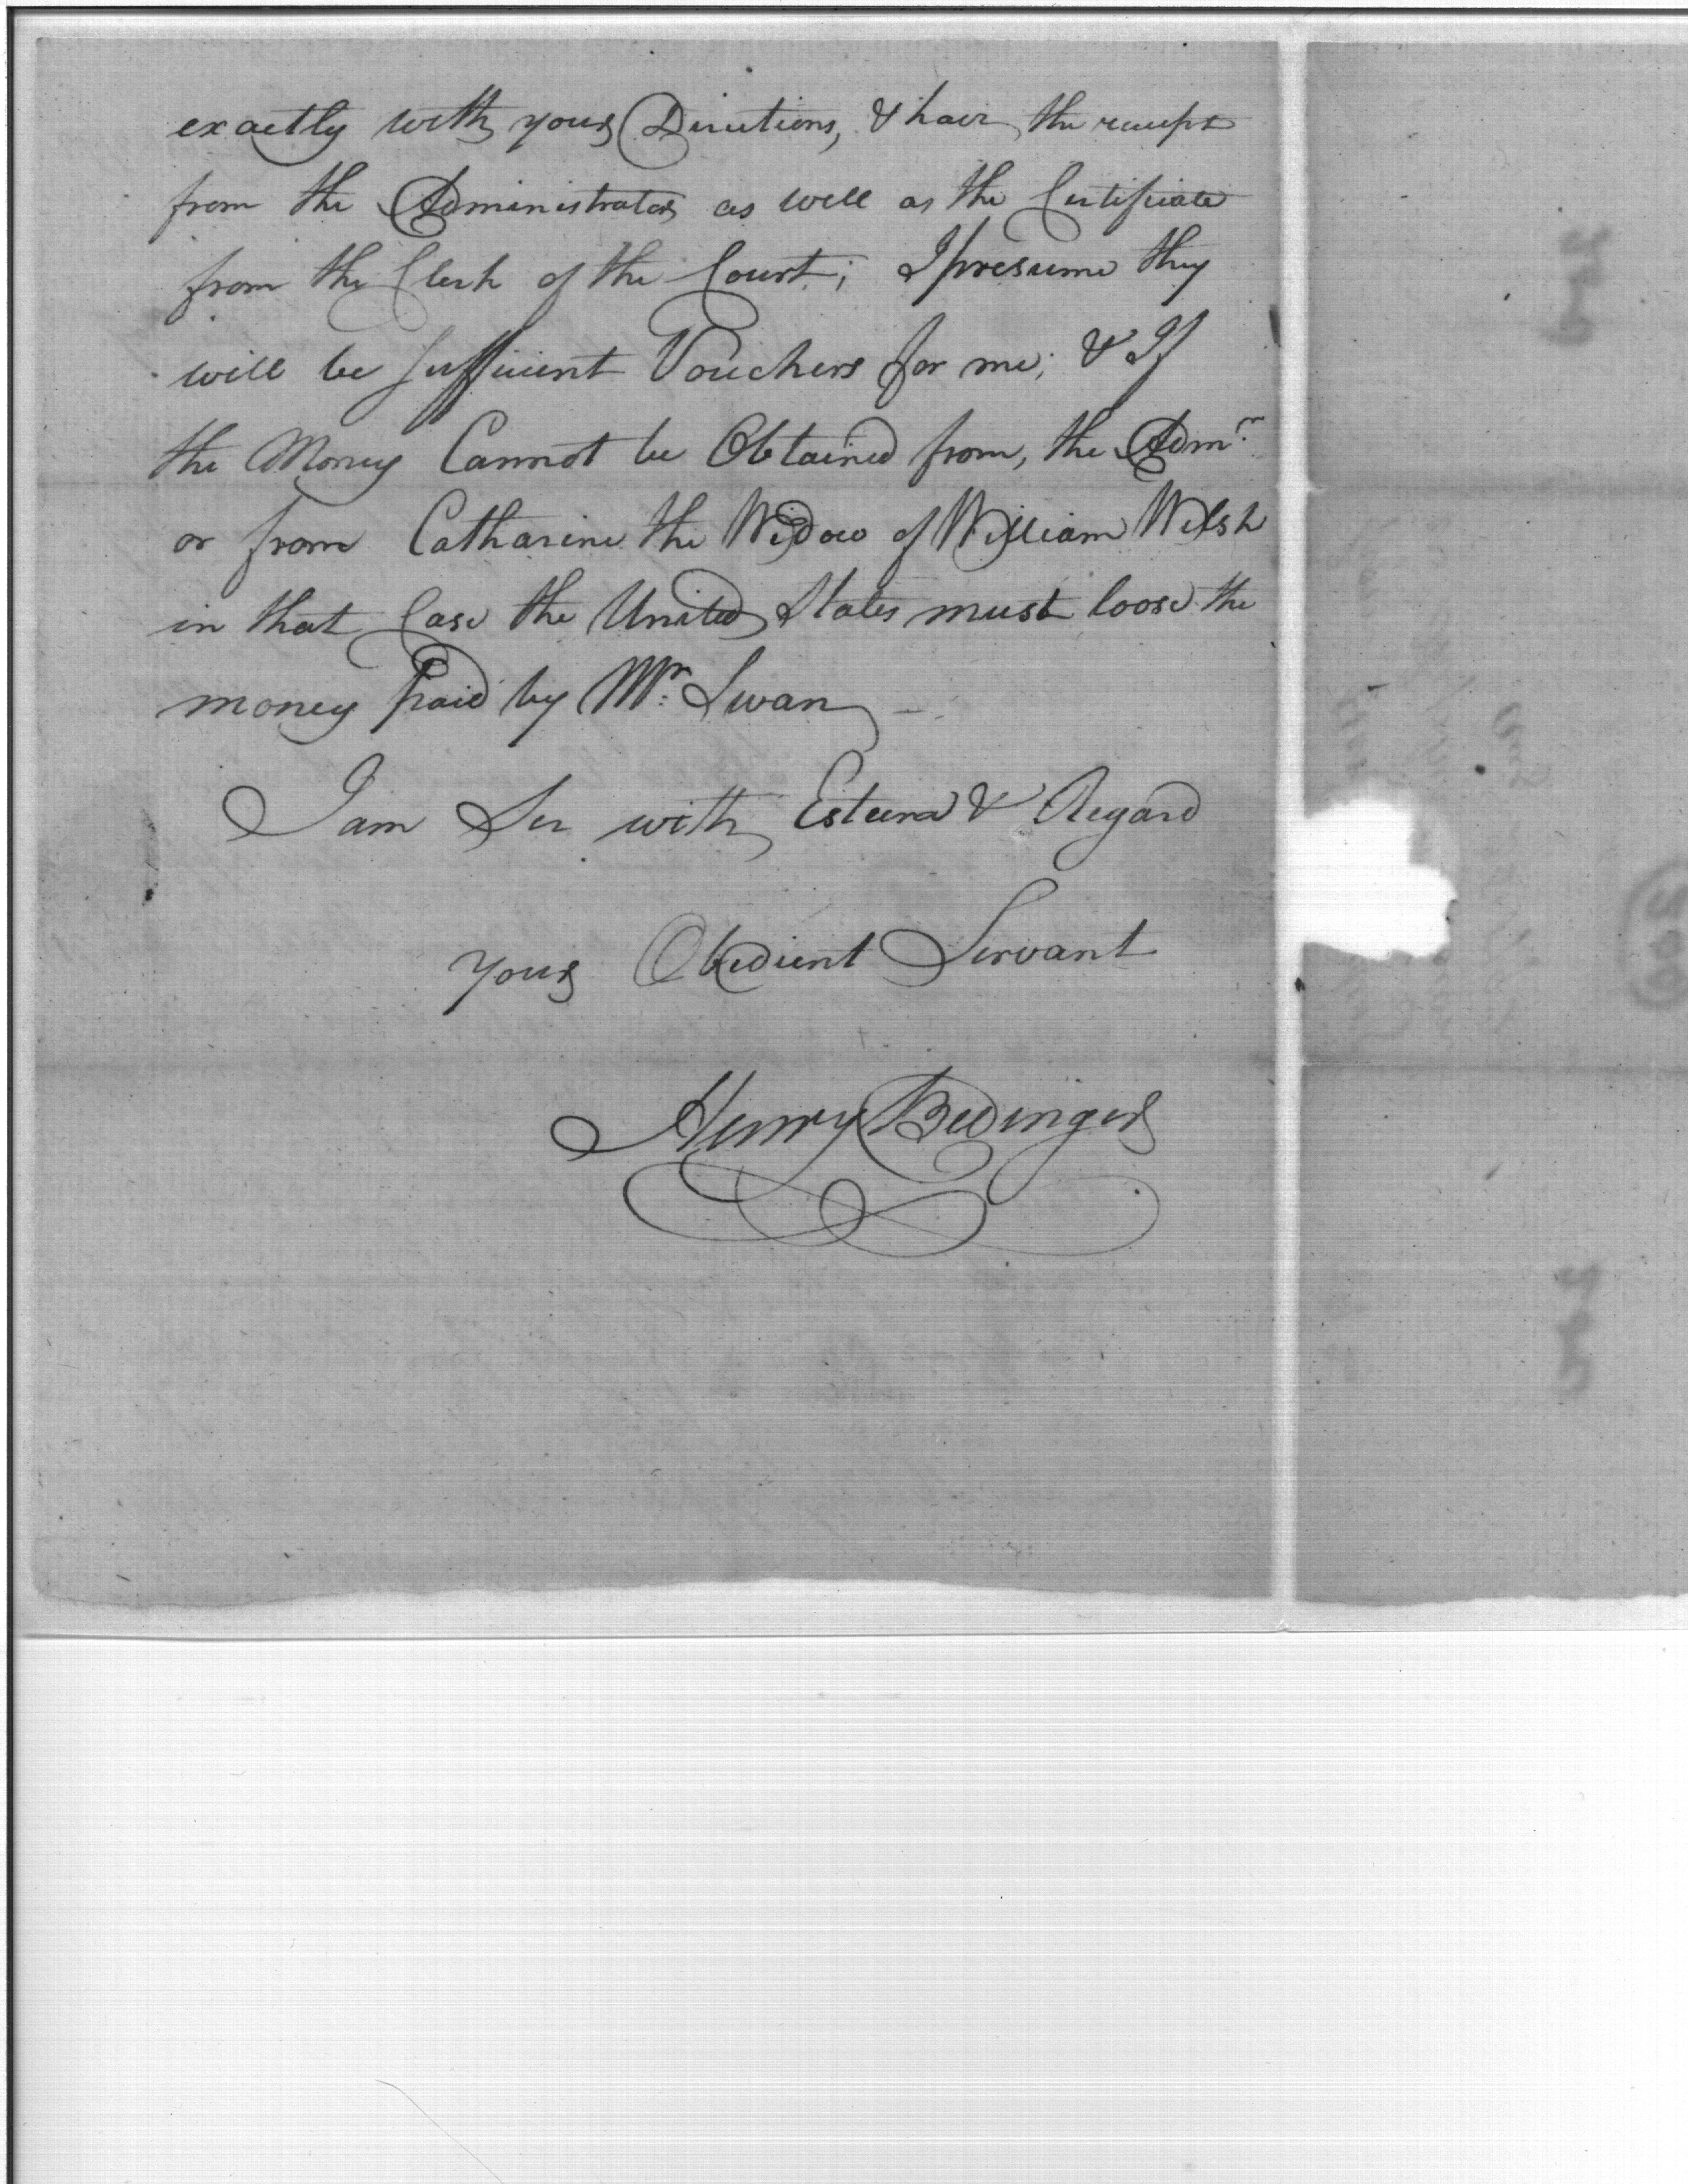 exactly with your Directions, & have the receipt
from the Administrator as well as the Certificate
from the Clerk of the Court; I presume they
will be sufficient Vouchers for me; & If
the Money Cannot be Obtained from, the Admr.
or from Catharine the Widow of William Welsh
in that Case the United States must loose the
money paid by Mr. Swan —
I am Sir with Esteem & Regard
your Obedient Servant
Henry Bedinger